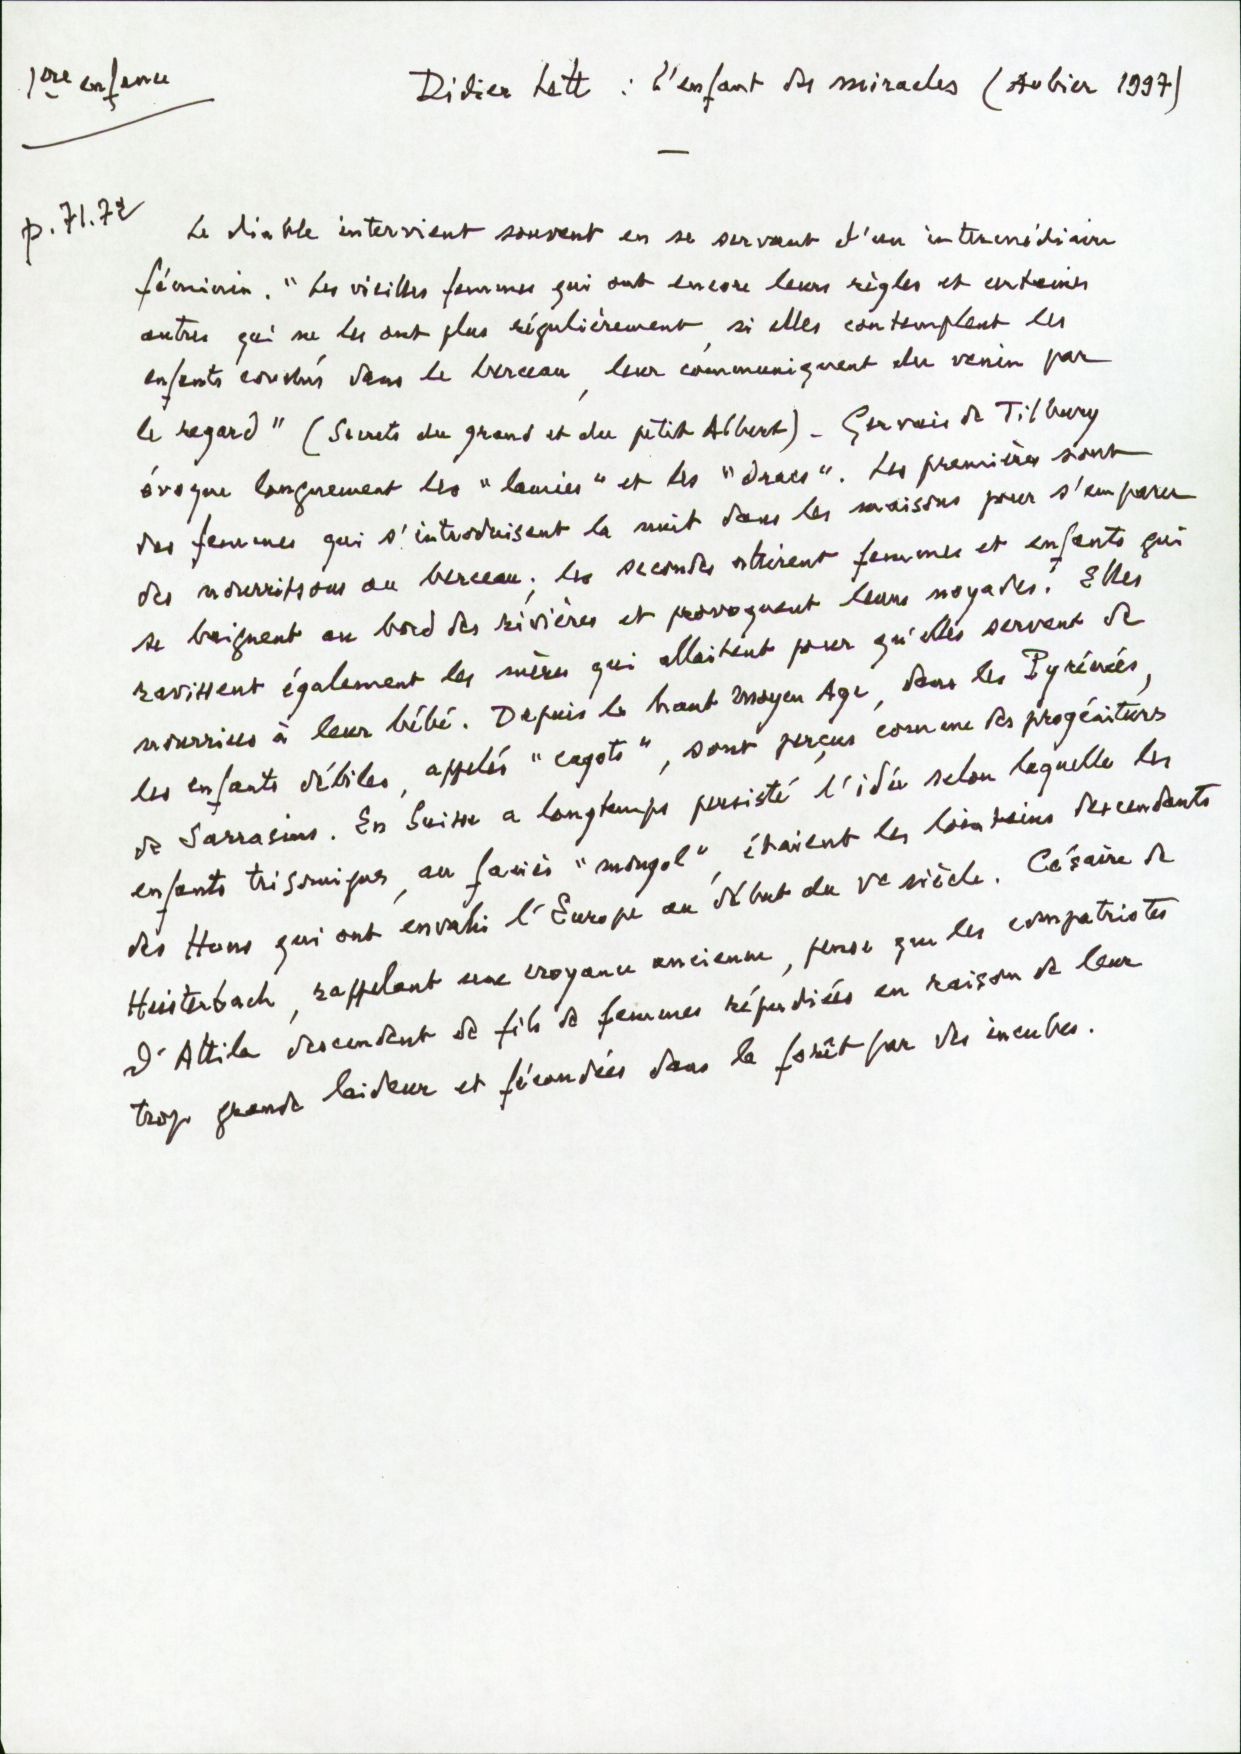 1ère enfance
Didier Lett : l'enfant des miracles (Aubier 1997)
—
p. 71.72
Le diable intervient souvent en se servant d'un intermédiaire
féminin. "Les vieilles femmes qui ont encore leurs règles et certaines
autres qui ne les ont plus régulièrement, si elles contemplent les
enfants couchés dans le berceau, leur communiquent du venin par
le regard" (Secrets du grand et du petit Albert) - Gervais de Tilbury
évoque longuement les "lamies" et les "dracs". Les premières sont
des femmes qui s'introduisent la nuit dans les maisons pour s'emparer
des nourrissons au berceau ; les secondes attirent femmes et enfants qui
se baignent au bord des rivières et provoquent leurs noyades. Elles
ravissent également les mères qui allaitent pour qu'elles servent de
nourrices à leur bébé. Depuis le haut moyen Age, dans les Pyrénées,
les enfants débiles, appelés "cagots", sont perçus comme des progénitures
de Sarrasins. En Suisse a longtemps persisté l'idée selon laquelle les
enfants trisomiques, au faciès "mongol", étaient les lointains descendants
des Huns qui ont envahi l'Europe au début du Ve siècle. Césaire de
Heisterbach, rappelant une croyance ancienne, pense que les compatriotes
d'Attila descendent de fils de femmes répudiées en raison de leur
trop grande laideur et fécondées dans la forêt par des incubes.